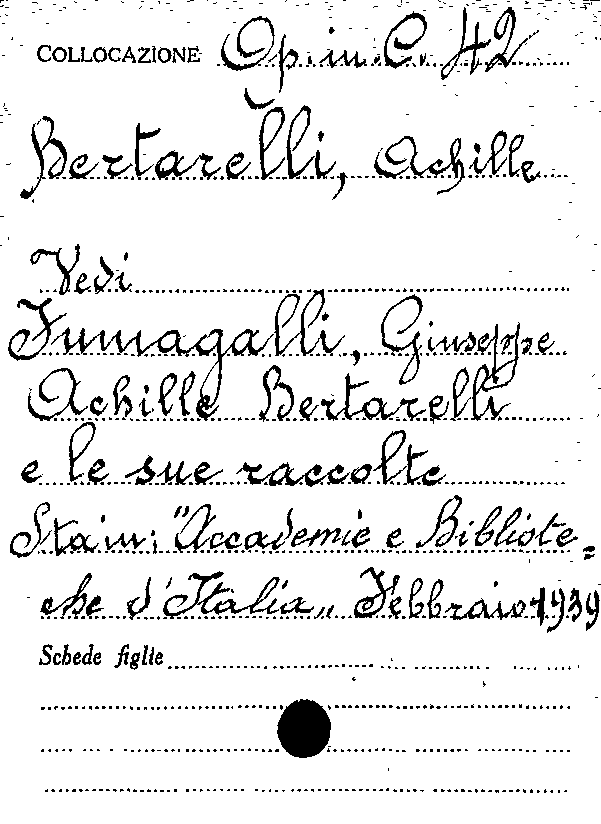 COLLOCAZIONE Op. in. C. 42
Bertarelli, Achille
Vedi
Fumagalli, Giuseppe
Achille Bertarelli
e le sue raccolte
Sta in: "Accademie e Bibliote=
che d'Italia„ Febbraio 1939
Schede figlie